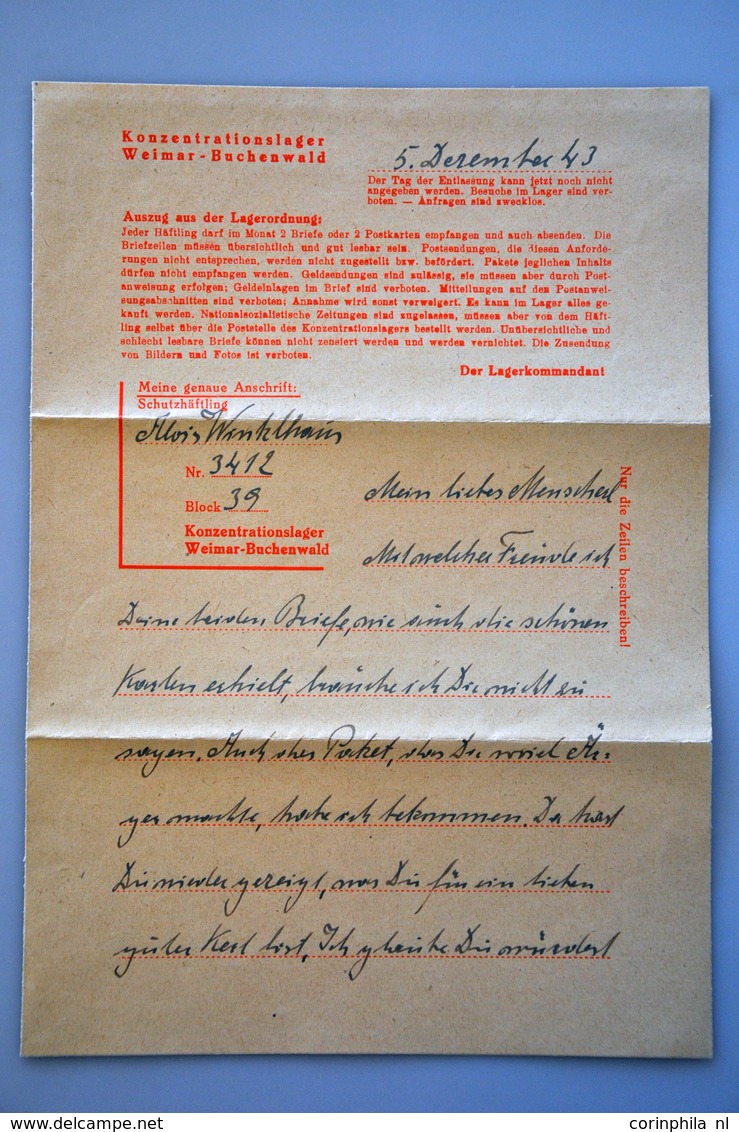 Konzentrationslager
Weimar-Buchenwald
5. Dezember 43
Der Tag der Entlassung kann jetzt noch nicht
angegeben werden. Besuche im Lager sind ver-
boten. — Anfragen sind zwecklos.
Auszug aus der Lagerordnung:
Jeder Häftling darf im Monat 2 Briefe oder 2 Postkarten empfangen und auch absenden. Die
Briefzeilen müssen übersichtlich und gut lesbar sein. Postsendungen, die diesen Anforde-
rungen nicht entsprechen, werden nicht zugestellt bzw. befördert. Pakete jeglichen Inhalts
dürfen nicht empfangen werden. Geldsendungen sind zulässig, sie müssen aber durch Post-
anweisung erfolgen; Geldeinlagen im Brief sind verboten. Mitteilungen auf den Postanwei-
sungsabschnitten sind verboten; Annahme wird sonst verweigert. Es kann im Lager alles ge-
kauft werden. Nationalsozialistische Zeitungen sind zugelassen, müssen aber von dem Häft-
ling selbst über die Poststelle des Konzentrationslagers bestellt werden. Unübersichtliche und
schlecht lesbare Briefe können nicht zensiert werden und werden vernichtet. Die Zusendung
von Bildern und Fotos ist verboten.
Der Lagerkommandant
Meine genaue Anschrift:
Schutzhäftling
Alois
Nr. 3412
Block 39
Konzentrationslager
Weimar-Buchenwald
Nur die Zeilen beschreiben!
Mein liebes Menscherl
Mit welcher Freude ich
Deine beiden Briefe, wie auch die schönen
Karten erhielt, brauche ich Dir nicht zu
sagen. Auch das Paket, das Dir soviel Är=
ger machte, habe ich bekommen. Da hast
Du wieder gezeigt, was Du für ein lieber
guter Kerl bist, Ich glaube Du würdest
delcampe.net
corinphila nl